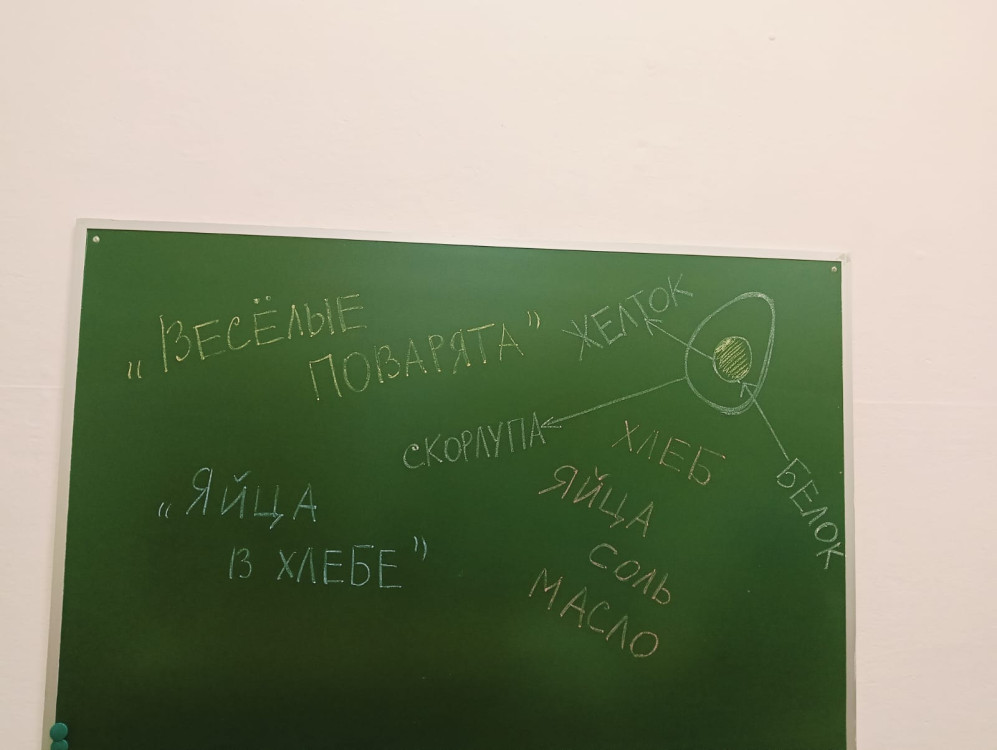 „ВЕСЁЛЫЕ
ПОВАРЯТА”
ЖЕЛТОК
СКОРЛУПА
БЕЛОК
„ЯЙЦА
В ХЛЕБЕ”
ХЛЕБ
ЯЙЦА
СОЛЬ
МАСЛО